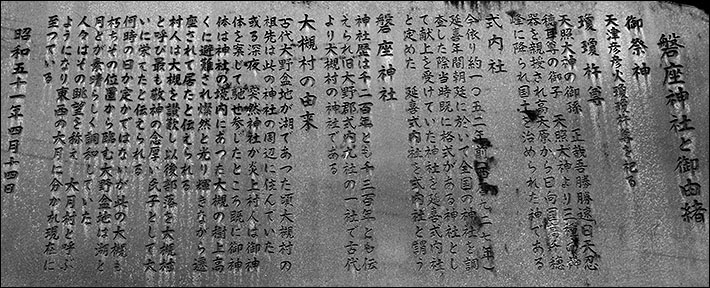 磐座神社と御由緒
御祭神
天津彦彦火瓊瓊杵尊を祀る
瓊瓊杵尊
天照大神の御孫 正哉吾勝勝速日天忍
穂耳尊の御子 天照大神より三種の神
器を親授され高天原から日向国高千穂
峰に降られ国土を治められた神である
式内社
今依り約一〇五二年前
延喜年間朝廷に於いて全国の神社を調
査した際当時既に格式がある神社とし
て献上を受けていた神社を延喜式内社
と定めた 延喜式内社を式内社と謂う
磐座神社
神社歴は千二百年とも千三百年とも伝
えられ旧大野郡式内九社の一社で古代
神社である
大槻村の由来
古代大野盆地が湖であつた頃大槻村の
祖先は此の神社の周辺に住んでいた
或る深夜 突然神社が炎上村人は御神
体を案じて馳せ参じたところ既に御神
体は神社の境内にあつた大槻の樹上高
くに避難され燦然と光り輝きながら遷
座されて居たと伝えられる
村人は大槻を讃歎し以後部落を大槻村
と呼び最も敬神の念厚い氏子として大
いに栄てたと伝えられる
何時の日か定かではないが此の大槻も
朽ちその位置から臨む大野盆地は湖と
月とが素晴らしく調和していた
人々はその眺望を称え 大月村と呼ぶ
ようになり東西の大月に分かれ現在に
至つている
昭和五十一年四月十四日